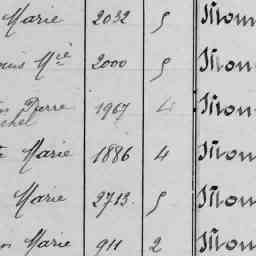 Marie 2032 5 Mon
Mie 2000 5 Mon
Pierre 1967 4 Mon
chel
Marie 1886 4 Mon
Marie 2713. 5 Mon
Marie 911 2 Mon